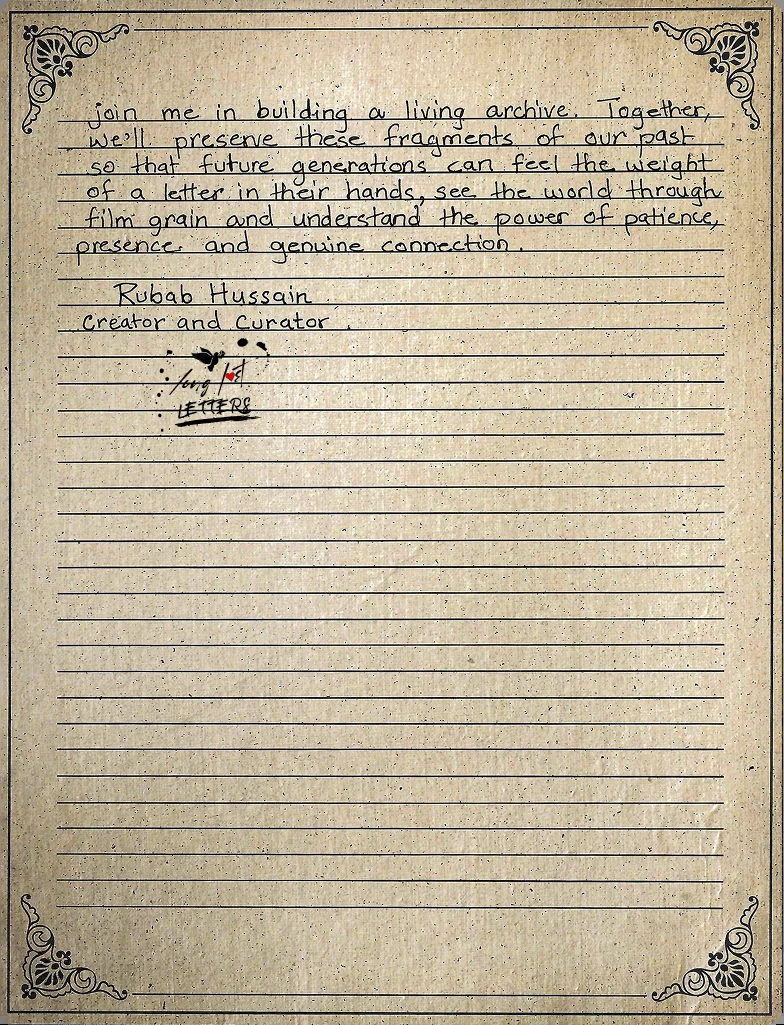 join me in building a living archive. Together,
we'll preserve these fragments of our past
so that future generations can feel the weight
of a letter in their hands, see the world through
film grain and understand the power of patience,
presence. and genuine connection.
Rubab Hussain
Creator and Curator.
long lost
LETTERS